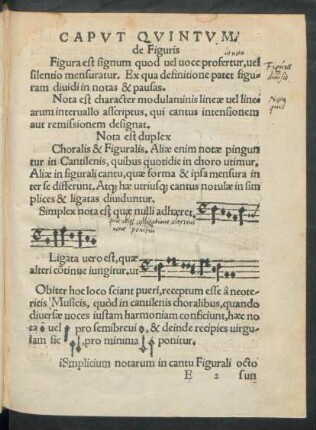 CAPVT QVINTVM,
de Figuris
Figura est signum quod uel uoce profertur, uel
silentio mensuratur. Ex qua definitione patet figu-
ram diuidi in notas & pausas.
Nota est character modulaminis lineæ uel line
arum interuallo asscriptus, qui cantus intensionem
aut remissionem designat.
Nota est duplex
Choralis & Figuralis. Aliæ enim notæ pingun
tur in Cantilenis, quibus quotidie in choro utimur.
Aliæ in figurali cantu, quæ forma & ipsa mensura in
ter se differunt. Atqꝫ hæ utriusqꝫ cantus notulæ in sim
plices & ligatas diuiduntur.
Simplex nota est quæ nulli adhæret,
Ligata uero est, quæ
alteri cõtinue iungitur, ut
Obiter hoc loco sciant pueri, receptum esse â neote-
ricis Musicis, quòd in cantilenis choralibus, quando
diuersæ uoces iustam harmoniam conficiunt, hæc no
ta uel pro semibreui, & deinde recipies uirgu-
lam sic pro minima ponitur.
iSmplicium notarum in cantu Figurali octo
E 2 sun